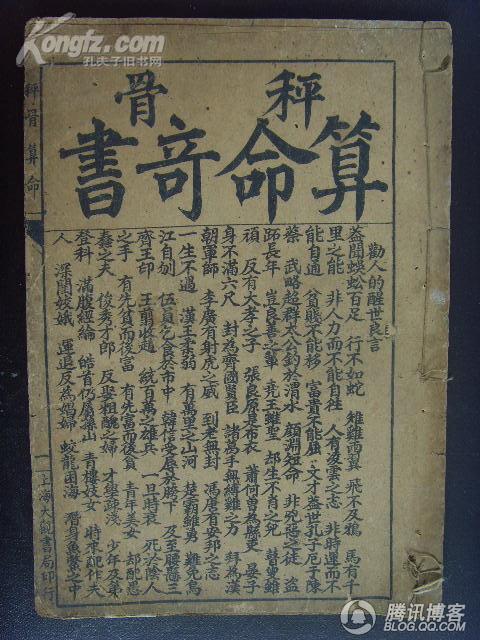 Kongfz.com
孔夫子旧书网
秤骨
算命奇書
秤骨算命
勸人的醒世良言
蓋聞蜈蚣百足 行不如蛇 雄雞两翼 飛不及鴉 馬有千
里之能 非人力而不能自往 人有凌雲之志 非時運而不
能自通 貧賤不能移 富貴不能屈 文才盖世孔子厄于陳
蔡 武略超群太公釣於渭水 顔淵短命 非兇惡之徒 盜
跖長年 豈良善之輩 堯王雖聖 却生不肖之兒 瞽叟雖
頑 反有大孝之子 張良原是布衣 蕭何曾為縣吏 晏子
身不滿六尺 封為齊國賢臣 諸萬手無縛雞之力 拜為漢
朝軍師 李廣有射虎之威 到老無封 馮唐有安邦之志
一生不遇 漢王雖弱 有萬里之山河 楚霸雖勇 難免烏
江自刎 伍員乞食於市中 韓信受辱於胯下 及至腰懸三
齊王印 王翦收趙 統百萬之雄兵 一旦時衰 死於陰人
之手 有先貧而後富 有先富而後貧 青年美女 却配愚
蠢之夫 俊秀才郎 反娶粗醜之婦 才學踈淺 少年及第
登科 滿腹經綸 皓首仍居深山 青樓妓女 時來配作夫
人 深閨嫂娥 運退反為娼婦 蛟龍困海 潛身魚鱉之中
上海大觀書局印行
腾讯博客
BLOG.QQ.COM